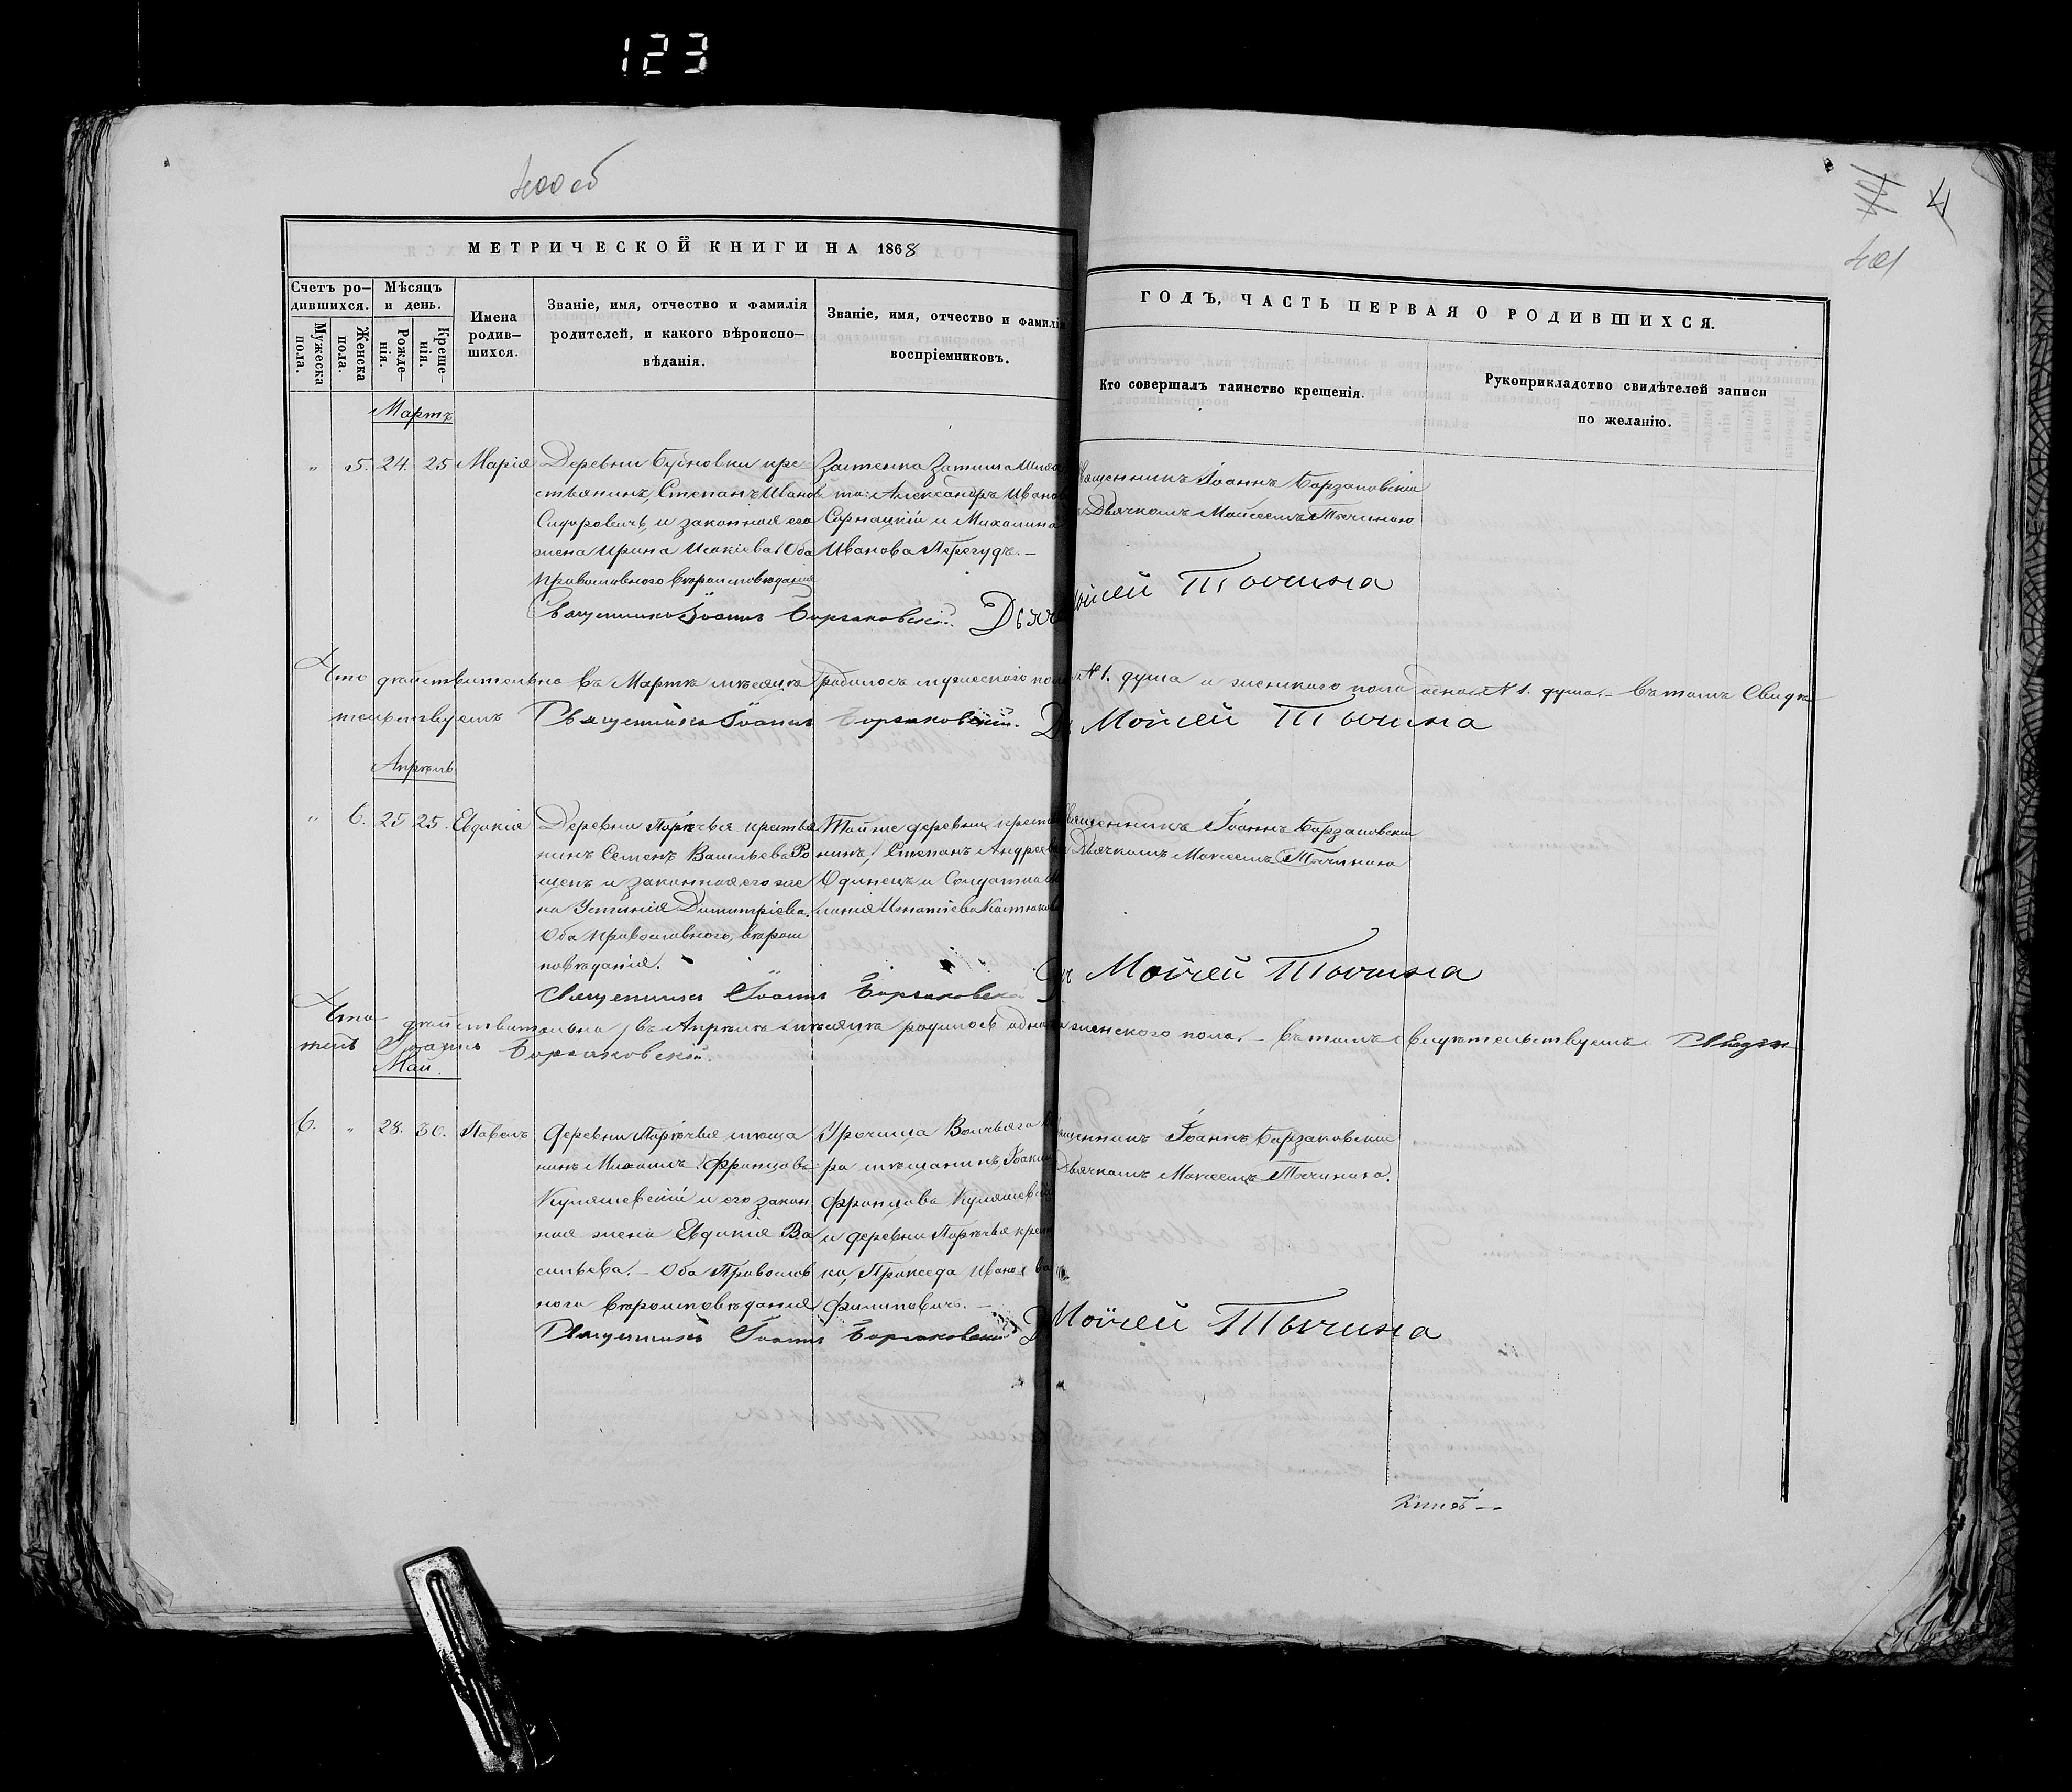 123
400 об
401
МЕТРИЧЕСКОЙ КНИГИ НА 1868
ГОДЪ, ЧАСТЬ ПЕРВАЯ О РОДИВШИХСЯ.
Счетъ ро-
дившихся.
Мужеска
пола.
Женска
пола.
Мѣсяцъ
и день.
Рожде-
нія.
Креще-
нія.
Имена
родив-
шихся.
Званіе, имя, отчество и фамилія
родителей, и какого вѣроиспо-
вѣданія.
Званіе, имя, отчество и фамилія
воспріемниковъ.
Кто совершалъ таинство крещенія.
Рукоприкладство свидѣтелей записи
по желанію.
Мартъ
" 5. 24. 25 Марія
Деревни Бубновки кре-
стьянинъ, Степанъ Иванов
Сидоровичъ, и законная его
жена Ирина Исакіева. Оба
православного вѣроисповѣданія
Застенка
Александръ Иванов
и Михалина
Иванова Перегудъ. –
Священникъ Іоаннъ Борзаковскій
Дьячкомъ Моисеемъ Тычиною
Священникъ Іоаннъ Борзаковскій. Дьяч Мойсей Тычина
Что дѣйствительно въ Мартѣ мѣсяцѣ родилось мужеского пола № 1. душа и женского пола одна № 1. душа. – Въ томъ свидѣ-
тельствуетъ Священникъ Іоаннъ Борзаковскій. Мойсей Тычина
Апрѣль
" 6. 25 25. Евдокія
Деревни Порѣчья крестья
нинъ Семенъ Васильевъ Ро
щепъ и законная его же
на Устинія Димитріева.
Оба православного, вѣроис
повѣданія.
Той же деревни крестья
нинъ, Степанъ Андреев
Одинецъ и Солдатка
Игнатіева
Священникъ Іоаннъ Борзаковскій
Дьячкомъ Моисеемъ Тычиною
Священникъ Іоаннъ Борзаковскій Мойсей Тычина
Что дѣйствительно въ Апрѣлѣ мѣсяцѣ родилось одна женского пола. – Въ томъ свидѣтельствуетъ
Іоаннъ Борзаковскій.
Май
6. " 28. 30. Павелъ
Деревни Порѣчья мѣща
нинъ Михаилъ Францовъ
Куляшевскій и его закон
ная жена Евдокія Ва
сильева. – Оба Православ
ного вѣроисповѣданія
Урочища Волчьяго
ра мѣщанинъ, Іоаким
Францовъ Куляшевскій
и деревни Порѣчья крестьян
ка, Пракседа Иванова
Филиповичъ. –
Священникъ Іоаннъ Борзаковскій
Дьячкомъ Моисеемъ Тычиною.
Священникъ Іоаннъ Борзаковскій Мойсей Тычина